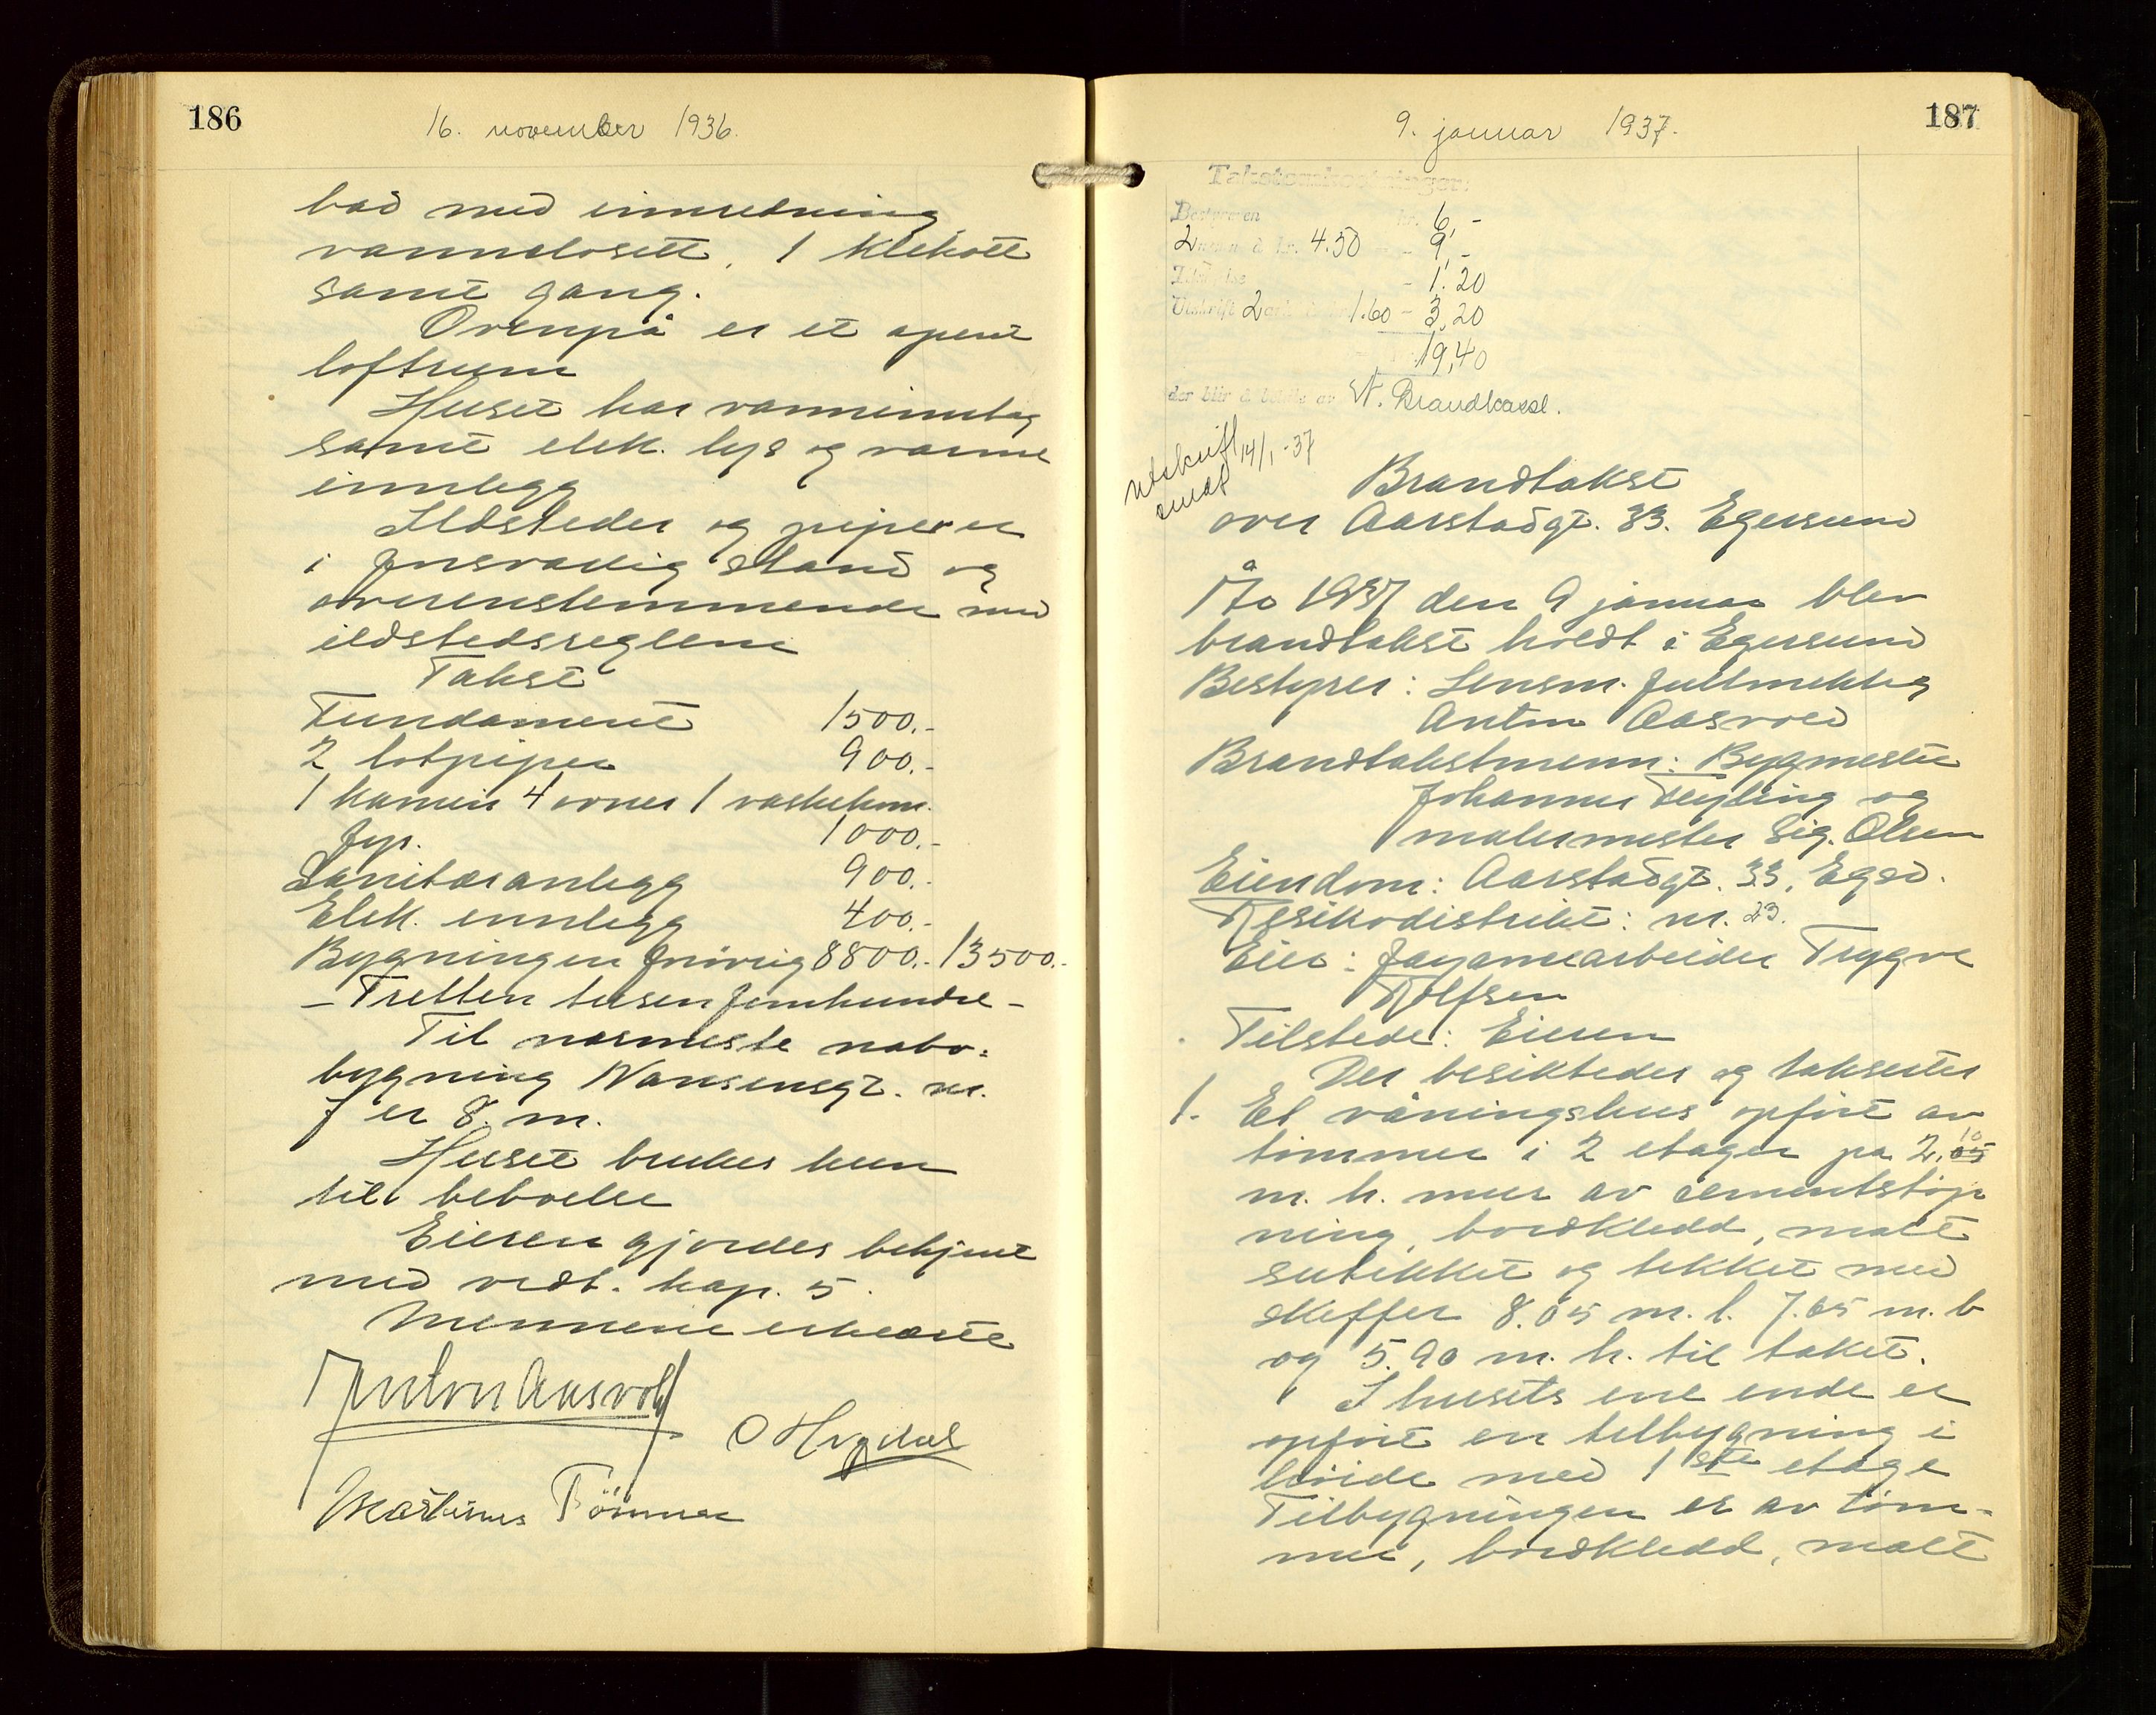 186
16. november 1936.
bad med innredning
vannclosett, 1 klekott
samt gang.
Ovenpå er et åpent
loftrum
Huset har vanninntag
samt elek. lys og varme
innlegg
Ildsteder og piper er
i forsvarlig stand og
overenstemmende med
ildstedsreglene
Takst
Fundament 1500.-
2 lotpiper 900.-
1 kamin 4 ovner 1 vaskekom.
fyr. 1000.-
Sanitæranlegg 900.-
Elek. innlegg 400.-
Bygningen forøvrig 8800.- 13500.-
- Tretten tusen femhundre -
Til nærmeste nabo-
bygning Nansensgt. nr.
7 er 8. m.
Huset brukes kun
til beboelse
Eieren gjordes bekjent
med vedt. kap. 5.
Mennene erklærte
Anton Aasvold
O Hegdal
Martinus Tönnes
187
9. januar 1937.
Takstomkostninger:
Bestyreren kr. 6,-
2 menn à kr. 4.50 - 9,-
- 1.20
Utskrift 2 ark à 1.60 - 3,20
19,40
der blir å betale av N. Brandkasse.
utskrift 14/1-37
sendt
Brandtakst
over Aarstadgt. 33. Egersund
År 1937 den 9 januar blev
brandtakst holdt i Egersund
Bestyrer: Lensm. fullmektig
Anton Aasvold
Brandtakstmenn: Bygmester
Johannes Feyling og
malermester Sig. Olsen
Eiendom: Aarstadgt. 33, Egsd.
Resikodistrikt: nr. 23.
Eier: Fayancearbeider Trygve
Rolfsen
Tilstede: Eieren
Der besiktedes og taksertes
1. Et våningshus opført av
tømmer i 2 etager på 2,05 10
m. h. mur av cementstøp
ning, bordkledd, malt
sutekket og tekket med
skeffer 8.05 m. l. 7.05 m. b
og 5.90 m. h. til taket.
I husets ene ende er
opført en tilbygning i
høide med 1ste etage
Tilbygningen er av tøm-
mer, bordkledd, malt